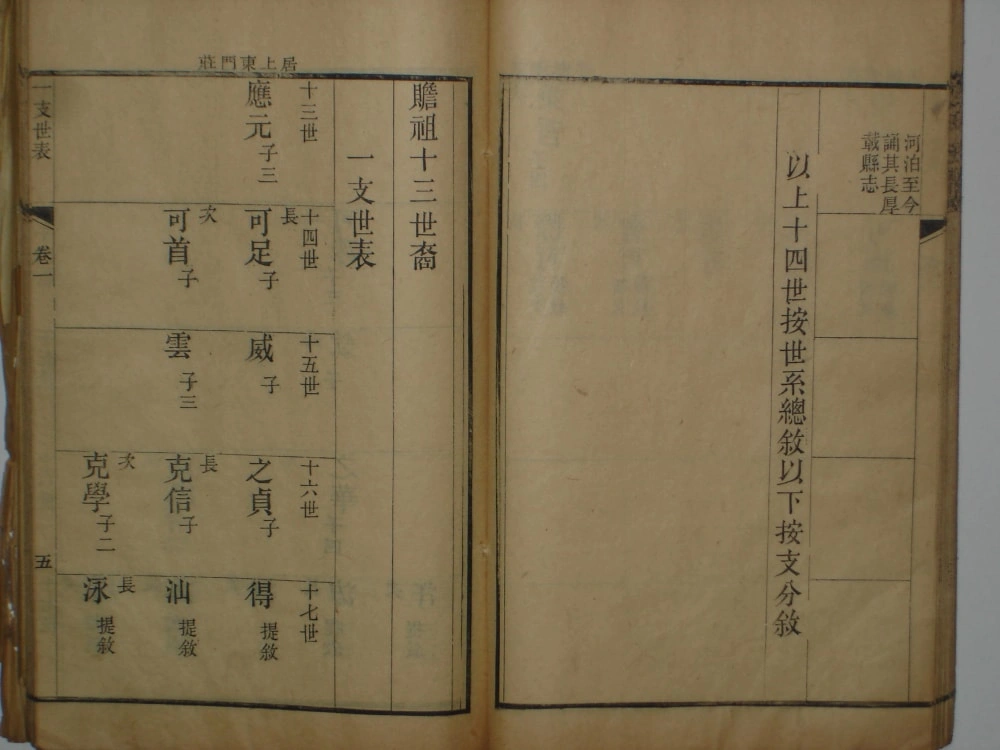 河泊至今
誦其長厚
載縣志
以上十四世按世系總敘以下按支分敘
贍祖十三世裔
一支世表
居上東門莊
十三世
應元 子三
十四世
長
可足 子
次
可首 子
十五世
威 子
雲 子三
十六世
之貞 子
長
克信 子
次
克學 子二
十七世
得 提敘
汕 提敘
長
泳 提敘
一支世表
卷一
五